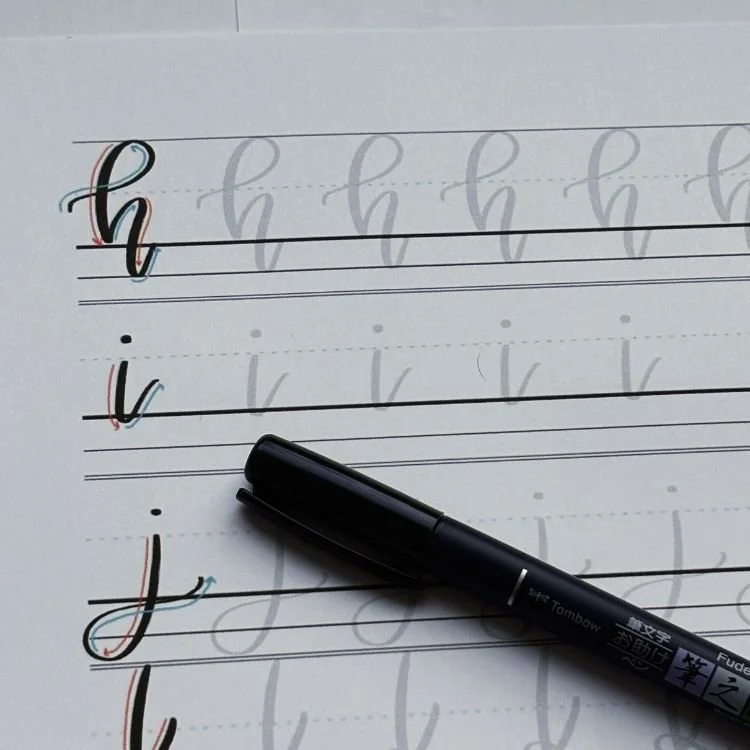 h h h h h h
i i i i i
j j j j j
Tombow
筆文字
お助け
ペン
筆之
Fude